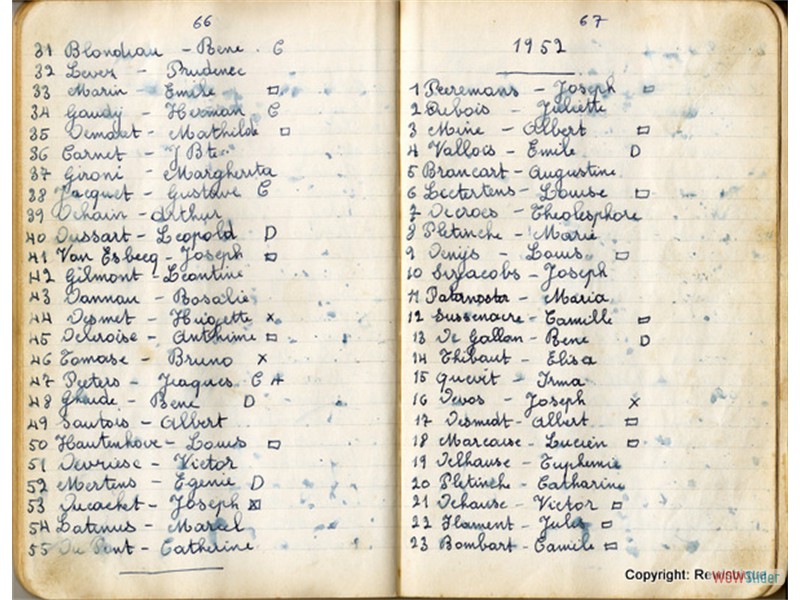 66
31 Blondiau - Rene C
32 Lever - Prudence
33 Marin - Emile
34 Gaudy - Herman C
35 Demaret - Mathilde
36 Carnet - J Bte
37 Gironi - Margherita
38 Jacquet - Gustave C
39 Dehouin - Arthur
40 Dussart - Leopold D
41 Van Esbecq - Joseph
42 Gilmont - Léontine
43 Dannau - Rosalie
44 Desmet - Huguette x
45 Delcroise - Anthime
46 Tomase - Bruno x
47 Peeters - Jeaques C
48 Gheude - Rene D
49 Sautois - Albert
50 Hautenhove - Louis
51 Devriese - Victor
52 Mertens - Egenie D
53 Ducachet - Joseph
54 Datinus - Marcel
55 Du Pont - Catherine
67
1952
1 Peeremans - Joseph
2 Dubois - Juliette
3 Maine - Albert
4 Vallois - Emile D
5 Brancart - Augustine
6 Leetertens - Louise
7 Decroes - Theolesphore
8 Pletinche - Marie
9 Denijs - Louis
10 Seyjacobs - Joseph
11 Paternoster - Maria
12 Sussenaire - Camille
13 De Gallan - Rene D
14 Thibaut - Elisa
15 Quevit - Irma
16 Devos - Joseph x
17 Desmedt - Albert
18 Marcause - Lucien
19 Delhause - Euphemie
20 Pletinche - Catharine
21 Dehause - Victor
22 Flament - Jules
23 Bombart - Camile
Copyright:
WOWSlider